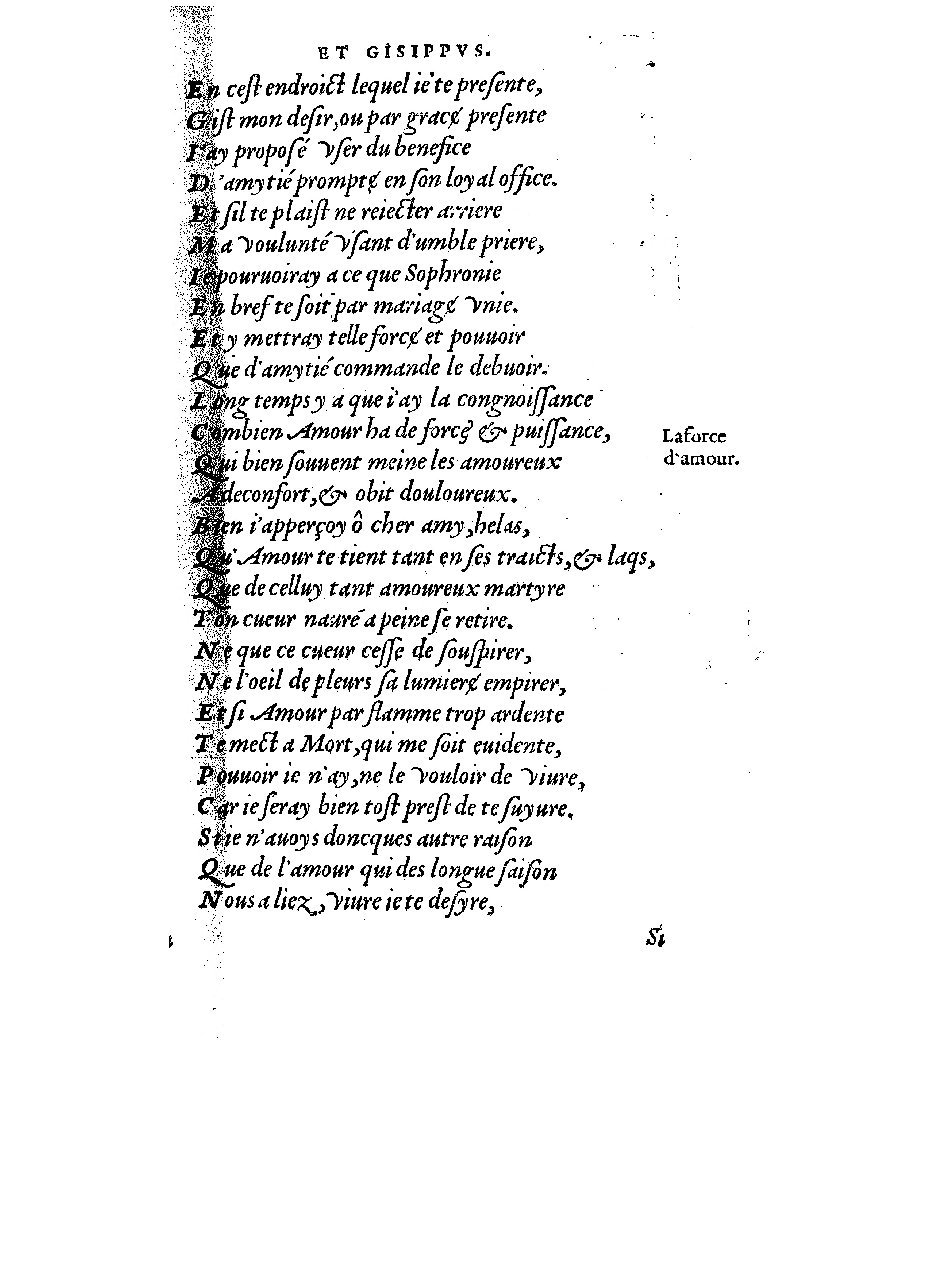 ET GISIPPVS.
En cest endroict lequel ie te presente,
Gist mon desir, ou par gracę presente
I'ay proposé vser du benefice
D'amytié promptę en son loyal office.
Et s'il te plaist ne reiecter arriere
Ma voulunté vsant d'umble priere,
Ie pouruoiray a ce que Sophronie
En bref te soit par mariagę vnie.
Et y mettray telle forcę et pouuoir
Que d'amytié commande le debuoir.
Long temps y a que i'ay la congnoissance
Combien Amour ha de forcę & puissance,
La force
d'amour.
Qui bien souuent meine les amoureux
A deconfort, & obit douloureux.
Bien i'apperçoy ô cher amy, helas,
Qu'Amour te tient tant en ses traicts, & laqs,
Que de celluy tant amoureux martyre
Ton cueur nauré a peine se retire.
Ne que ce cueur cesse de souspirer,
Ne l'oeil de pleurs sa lumierę empirer,
Et si Amour par flamme trop ardente
Te mect a Mort, qui me soit euidente,
Pouuoir ie n'ay, ne le vouloir de viure,
Car ie seray bien tost prest de te suyure.
Si ie n'auoys doncques autre raison
Que de l'amour qui des longue saison
Nous a liez, viure ie te desyre,
Si